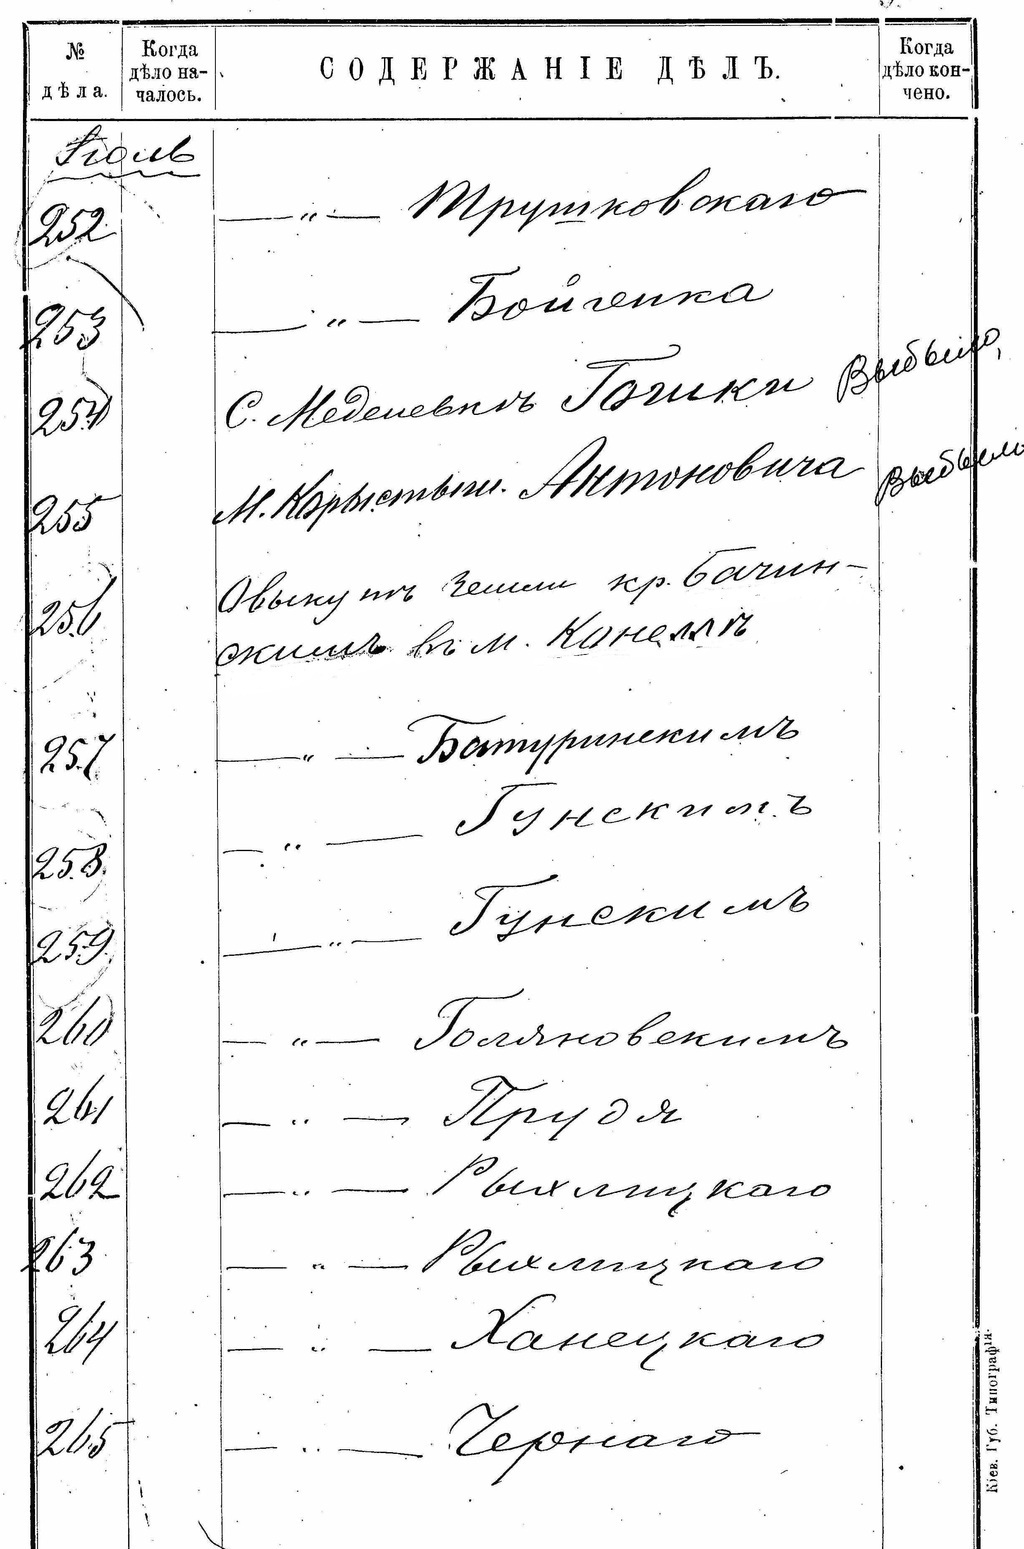 № дѣла.
Когда дѣло началось.
СОДЕРЖАНІЕ ДѢЛЪ.
Когда дѣло кончено.
252 —„— Трушковскаго
253 —„— Бойченка
254 С. Гоники Выбыло,
255 М. Антоновича Выбыло
256 О выкупѣ земли кр. Бачин-
скимъ въ м. Конеллѣ
257 —„— Батуринскимъ
258. —„— Гунскимъ
259. —„— Гунскимъ
260 —„— Голяновскимъ
261 —„— Прудя
262 —„— Рыхлицкаго
263 —„— Рыхлицкаго
264 —„— Ханецкаго
265 —„— Чернаго
Кіев. Губ. Типографія.